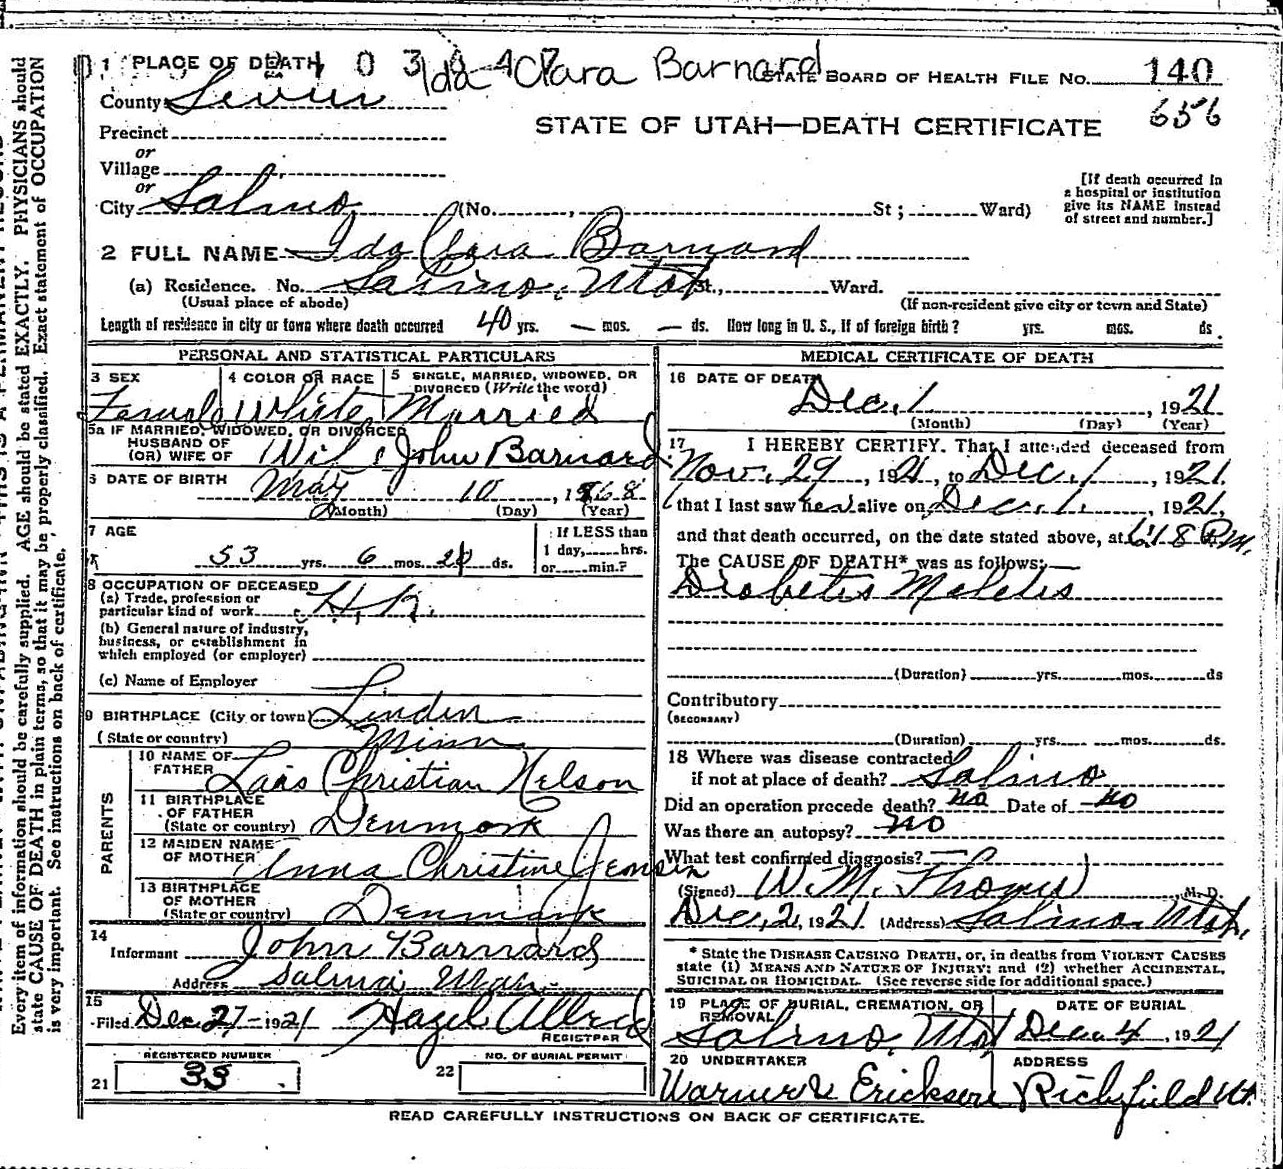 1 PLACE OF DEATH
Ida Clara Barnard
STATE BOARD OF HEALTH FILE NO. 140
County Sevier
656
STATE OF UTAH—DEATH CERTIFICATE
Precinct
or
Village
or
City Salina (No. , St; Ward)
[If death occurred in
a hospital or institution
give its NAME instead
of street and number.]
2 FULL NAME Ida Clara Barnard
(a) Residence. No. Salina, Utah St., Ward.
(Usual place of abode) (If non-resident give city or town and State)
Length of residence in city or town where death occurred 40 yrs. — mos. — ds. How long in U. S., if of foreign birth? yrs. mos. ds.
PERSONAL AND STATISTICAL PARTICULARS
3 SEX 4 COLOR OR RACE 5 SINGLE, MARRIED, WIDOWED, OR
DIVORCED (Write the word)
Female White Married
5a IF MARRIED, WIDOWED, OR DIVORCED
HUSBAND OF
(OR) WIFE OF John Barnard
6 DATE OF BIRTH May 10, 1868
(Month) (Day) (Year)
7 AGE If LESS than
53 yrs. 6 mos. ds. 1 day, hrs.
or min.?
8 OCCUPATION OF DECEASED
(a) Trade, profession or
particular kind of work H. K.
(b) General nature of industry,
business, or establishment in
which employed (or employer)
(c) Name of Employer
9 BIRTHPLACE (City or town) Linden
(State or country) Minn
PARENTS
10 NAME OF
FATHER Lars Christian Nelson
11 BIRTHPLACE
OF FATHER
(State or country) Denmark
12 MAIDEN NAME
OF MOTHER Anna Christine Jensen
13 BIRTHPLACE
OF MOTHER
(State or country) Denmark
14
Informant John Barnard
Address Salina Utah
15
Filed Dec 27 1921 Hazel Allred
REGISTRAR
REGISTERED NUMBER NO. OF BURIAL PERMIT
21 33 22
MEDICAL CERTIFICATE OF DEATH
16 DATE OF DEATH
Dec. 1, 1921
(Month) (Day) (Year)
17 I HEREBY CERTIFY. That I attended deceased from
Nov. 29, 1921, to Dec. 1, 1921
that I last saw her alive on Dec. 1, 1921,
and that death occurred, on the date stated above, at 6:18 P.M.
The CAUSE OF DEATH* was as follows:
Diabetis Meletis
(Duration) yrs. mos. ds
Contributory
(SECONDARY)
(Duration) yrs. mos. ds.
18 Where was disease contracted
if not at place of death? Salina
Did an operation precede death? no Date of no
Was there an autopsy? no
What test confirmed diagnosis?
(Signed) W. M. M. D.
Dec, 2, 1921 (Address) Salina Utah.
* State the DISEASE CAUSING DEATH, or, in deaths from VIOLENT CAUSES
state (1) MEANS AND NATURE OF INJURY; and (2) whether ACCIDENTAL,
SUICIDAL OR HOMICIDAL. (See reverse side for additional space.)
19 PLACE OF BURIAL, CREMATION, OR DATE OF BURIAL
REMOVAL
Salina, Utah Dec. 4, 1921
20 UNDERTAKER ADDRESS
Warner & Ericksen Richfield Ut.
READ CAREFULLY INSTRUCTIONS ON BACK OF CERTIFICATE.
Every item of information should be carefully supplied. AGE should be stated EXACTLY. PHYSICIANS should
state CAUSE OF DEATH in plain terms, so that it may be properly classified. Exact statement of OCCUPATION
is very important. See instructions on back of certificate.